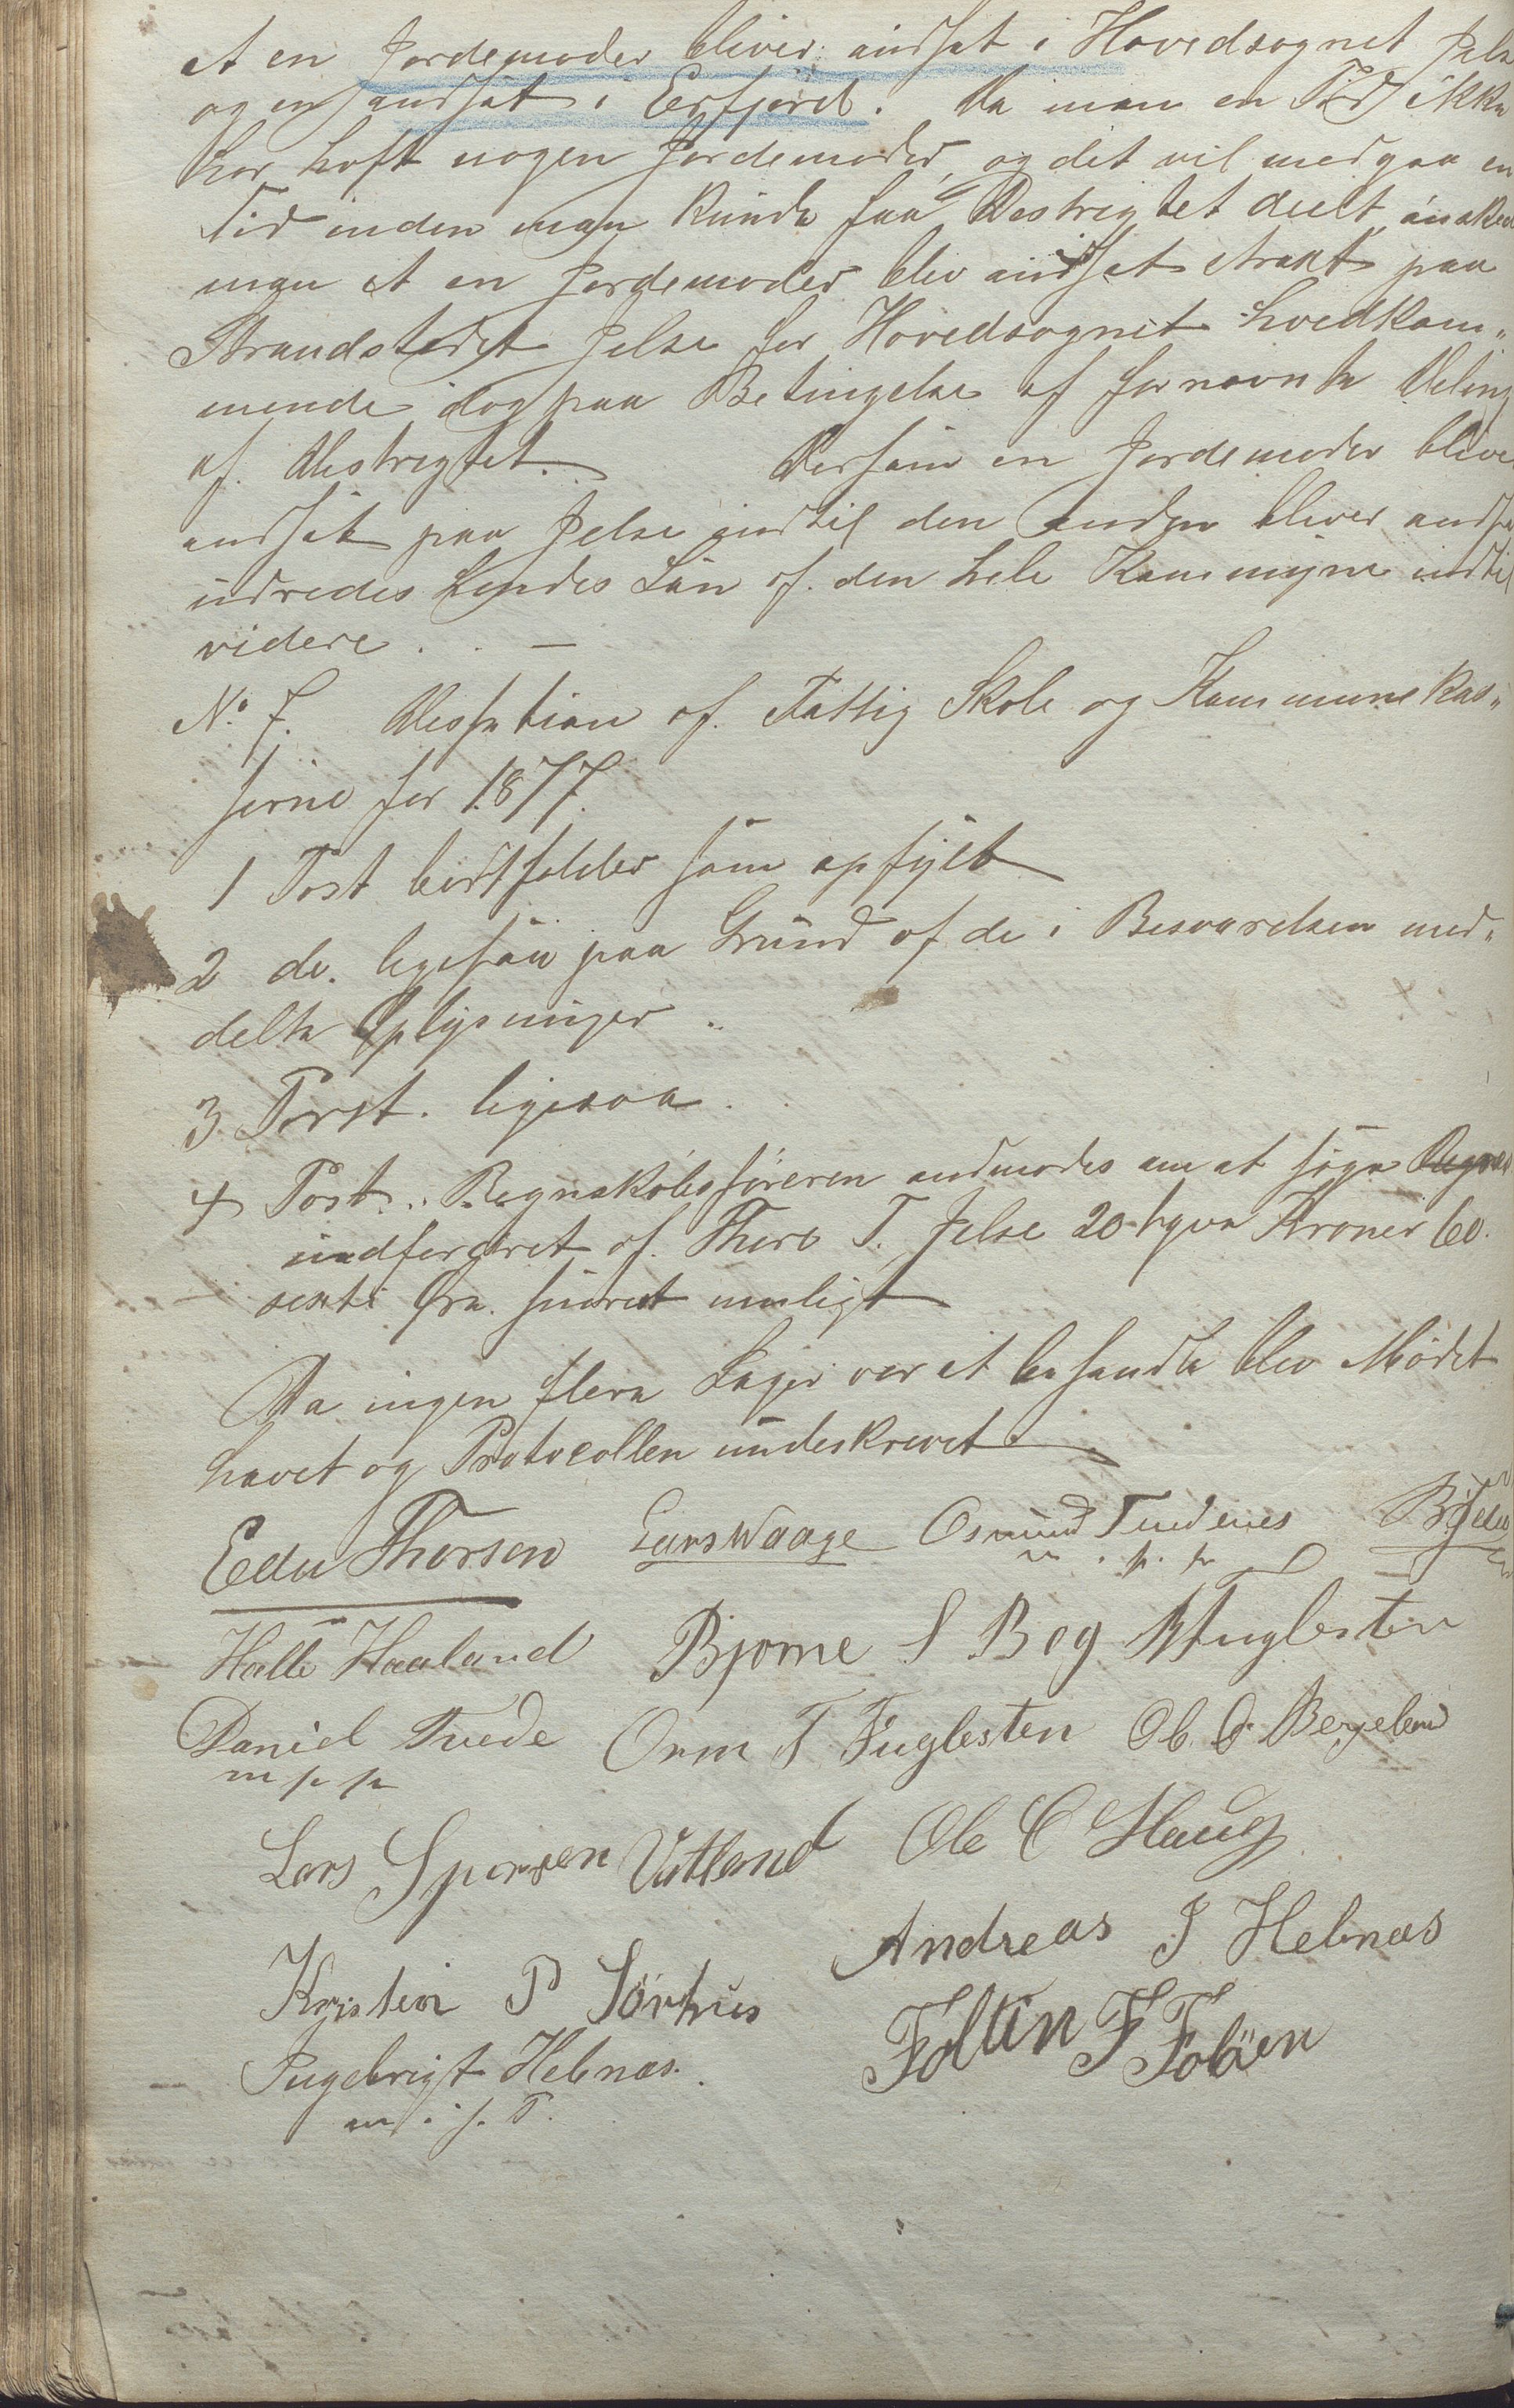 at en Jordemoder bliver andsat i Hovedsognet Jelse
og en andsat i Erfjord. Da man en Tid ikke
har haft nogen Jordemoder, og det vil medgaa en
Tid inden man kunde faa Destrigtet deelt ønsker
man at en Jordemoder blev andsat strakt paa
Strandstedet Jelse for Hovedsognet hvedkom„
mende dog paa Betingelse af fornævnte Deling
af Destrigtet. Dersom en Jordemoder bliver
andsat paa Jelse indtil den anden bliver andsat
udredes hendes Løn af den hele Kommune indtil
videre . . —
No. 7. Desition af Fattig Skole og Kommunekas„
serne for 1877.
1 Post bortfalder som opfylt
2 do. ligesaa paa Grund af de i Besvarelsen med„
delte Oplysninger ..
3 Post. ligesaa .
4 Post. Regnskabsføreren andmodes om at søge
indfordret af Thore T. Jelse 20 tyve Kroner 60.
sexti Øre snarest muligt
Da ingen flere Sager var at behandle blev Mødet
hævet og Protocollen undeskrevet
Edu Thorsen Lars Waage Osmund Tuedenes
m . p. p
Halle Haaland Bjorne S Beg Fuglesten
Daniel Tuede Orm T Fuglesten Ob. O. Bergeland
m p p
Lars Vatland Ole C Haug
Andreas J Hebnæs
Kristen P Sørhus
Foltin F Foløen
Ingebrigt Hebnæs.
m . p. P.